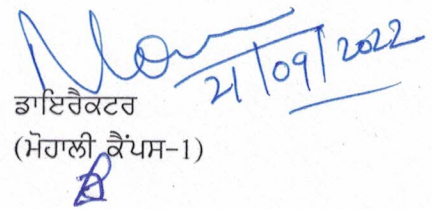 21/09/2022
ਡਾਇਰੈਕਟਰ
(ਮੋਹਾਲੀ ਕੈਂਪਸ-1)